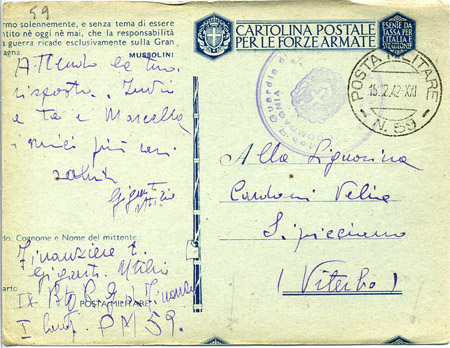 59
rmo solennemente, e senza tema di essere
ntito nè oggi nè mai, che la responsabilità
a guerra ricade esclusivamente sulla Gran
MUSSOLINI
Attendo la tua
risposta. Invio
a te a Marcella
i miei più cari
saluti
Giganti
Attilio
do: Cognome e Nome del mittente
Finanziere t.
Giganti Attilio
arto
IX Btg R. G. Finanza
POSTA MILITARE
I PM 59.
CARTOLINA POSTALE
PER LE FORZE ARMATE
ESENTE DA
TASSA PER
L'ITALIA E
SUE COLONIE
R. Guardia
POSTA MILITARE
16.12.42-XXI
N. 59
Alla Signorina
Cardoni Velia
Sipicciano
(Viterbo)